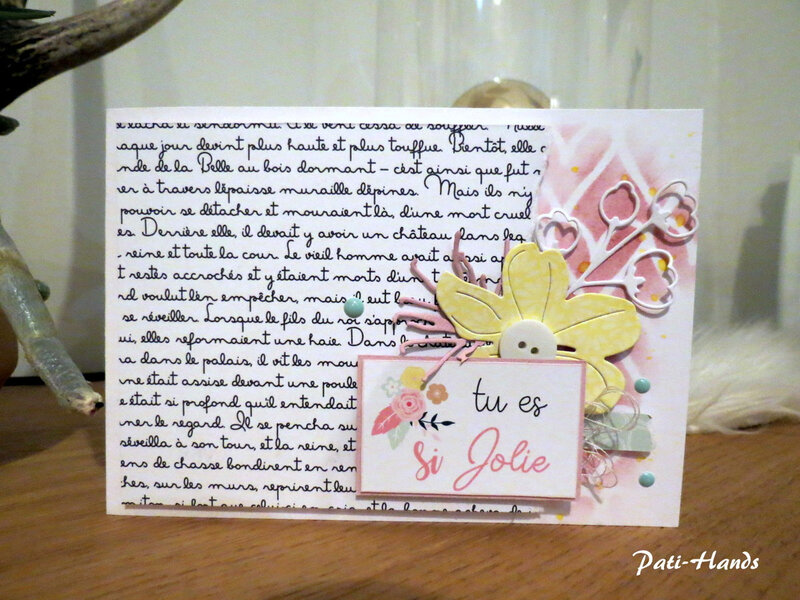 aque jour devint plus haute et plus touffue. Bientôt, elle
nde de la Belle au bois dormant – c'est ainsi que fut
er à travers l'épaisse muraille d'épines. Mais ils n'y
pouvoir se détacher et mouraient là, d'une mort cruel
es. Derrière elle, il devait y avoir un château dans leq
reine et toute la cour. Le vieil homme avait aussi ap
t restés accrochés et y étaient morts d'un
rd voulut l'en empêcher, mais il eut
se réveiller. Lorsque le fils du roi s'appro
ui, elles reformaient une haie. Dans
ra dans le palais, il vit les mou
ne était assise devant une poule
e était si profond qu'il entendait
ner le regard. Il se pencha su
séveilla à son tour, et la reine, et
ens de chasse bondirent en rem
hes, sur les murs, reprirent leu
tu es
si Jolie
Pati-Hands